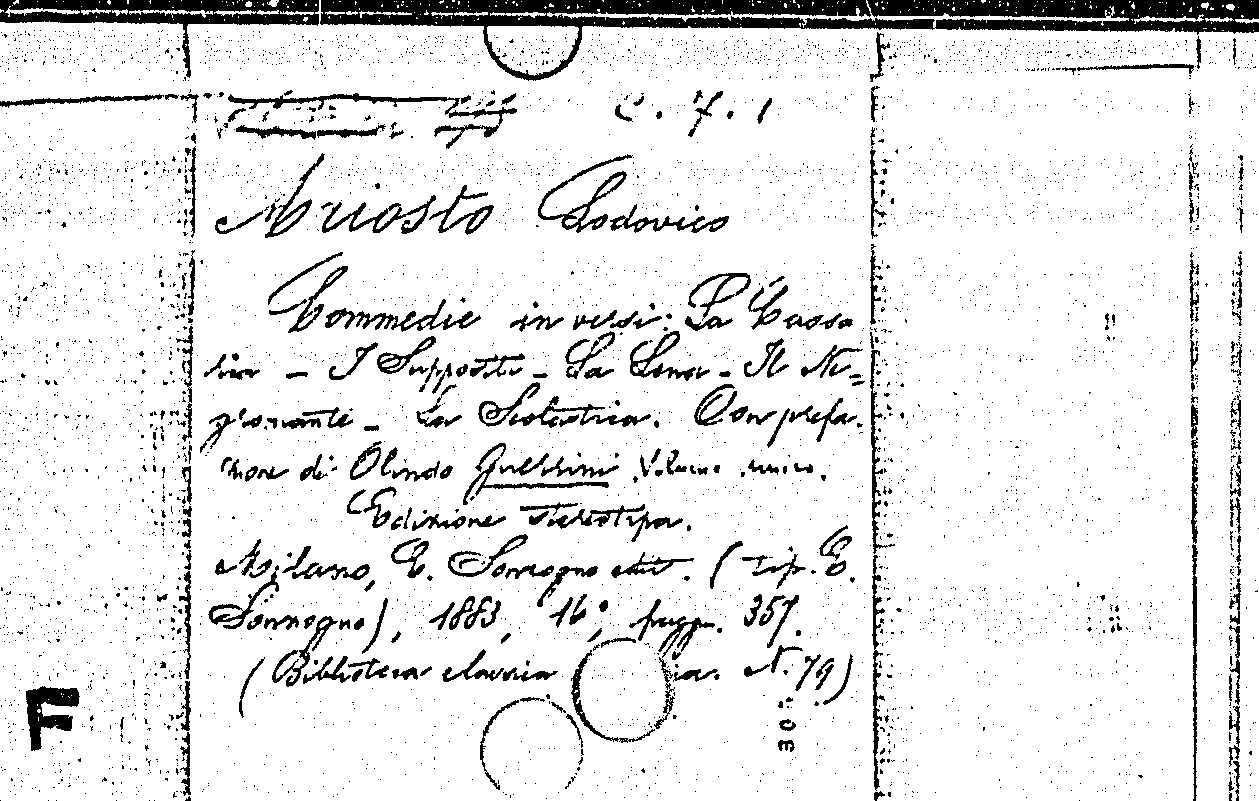 C. 7. 1
Ariosto Lodovico
Commedie in versi: La Cassa
ria - I Suppositi - La Lena - Il Ne=
gromante - La Scolastica. Con prefa.
zione di Olindo Guerrini Volume unico.
Edizione stereotipa.
Milano, E. Sonzogno edit. (tip. E.
Sonzogno), 1883, 16°, pagg. 357.
(Biblioteca classica ia. N. 79)
30
F